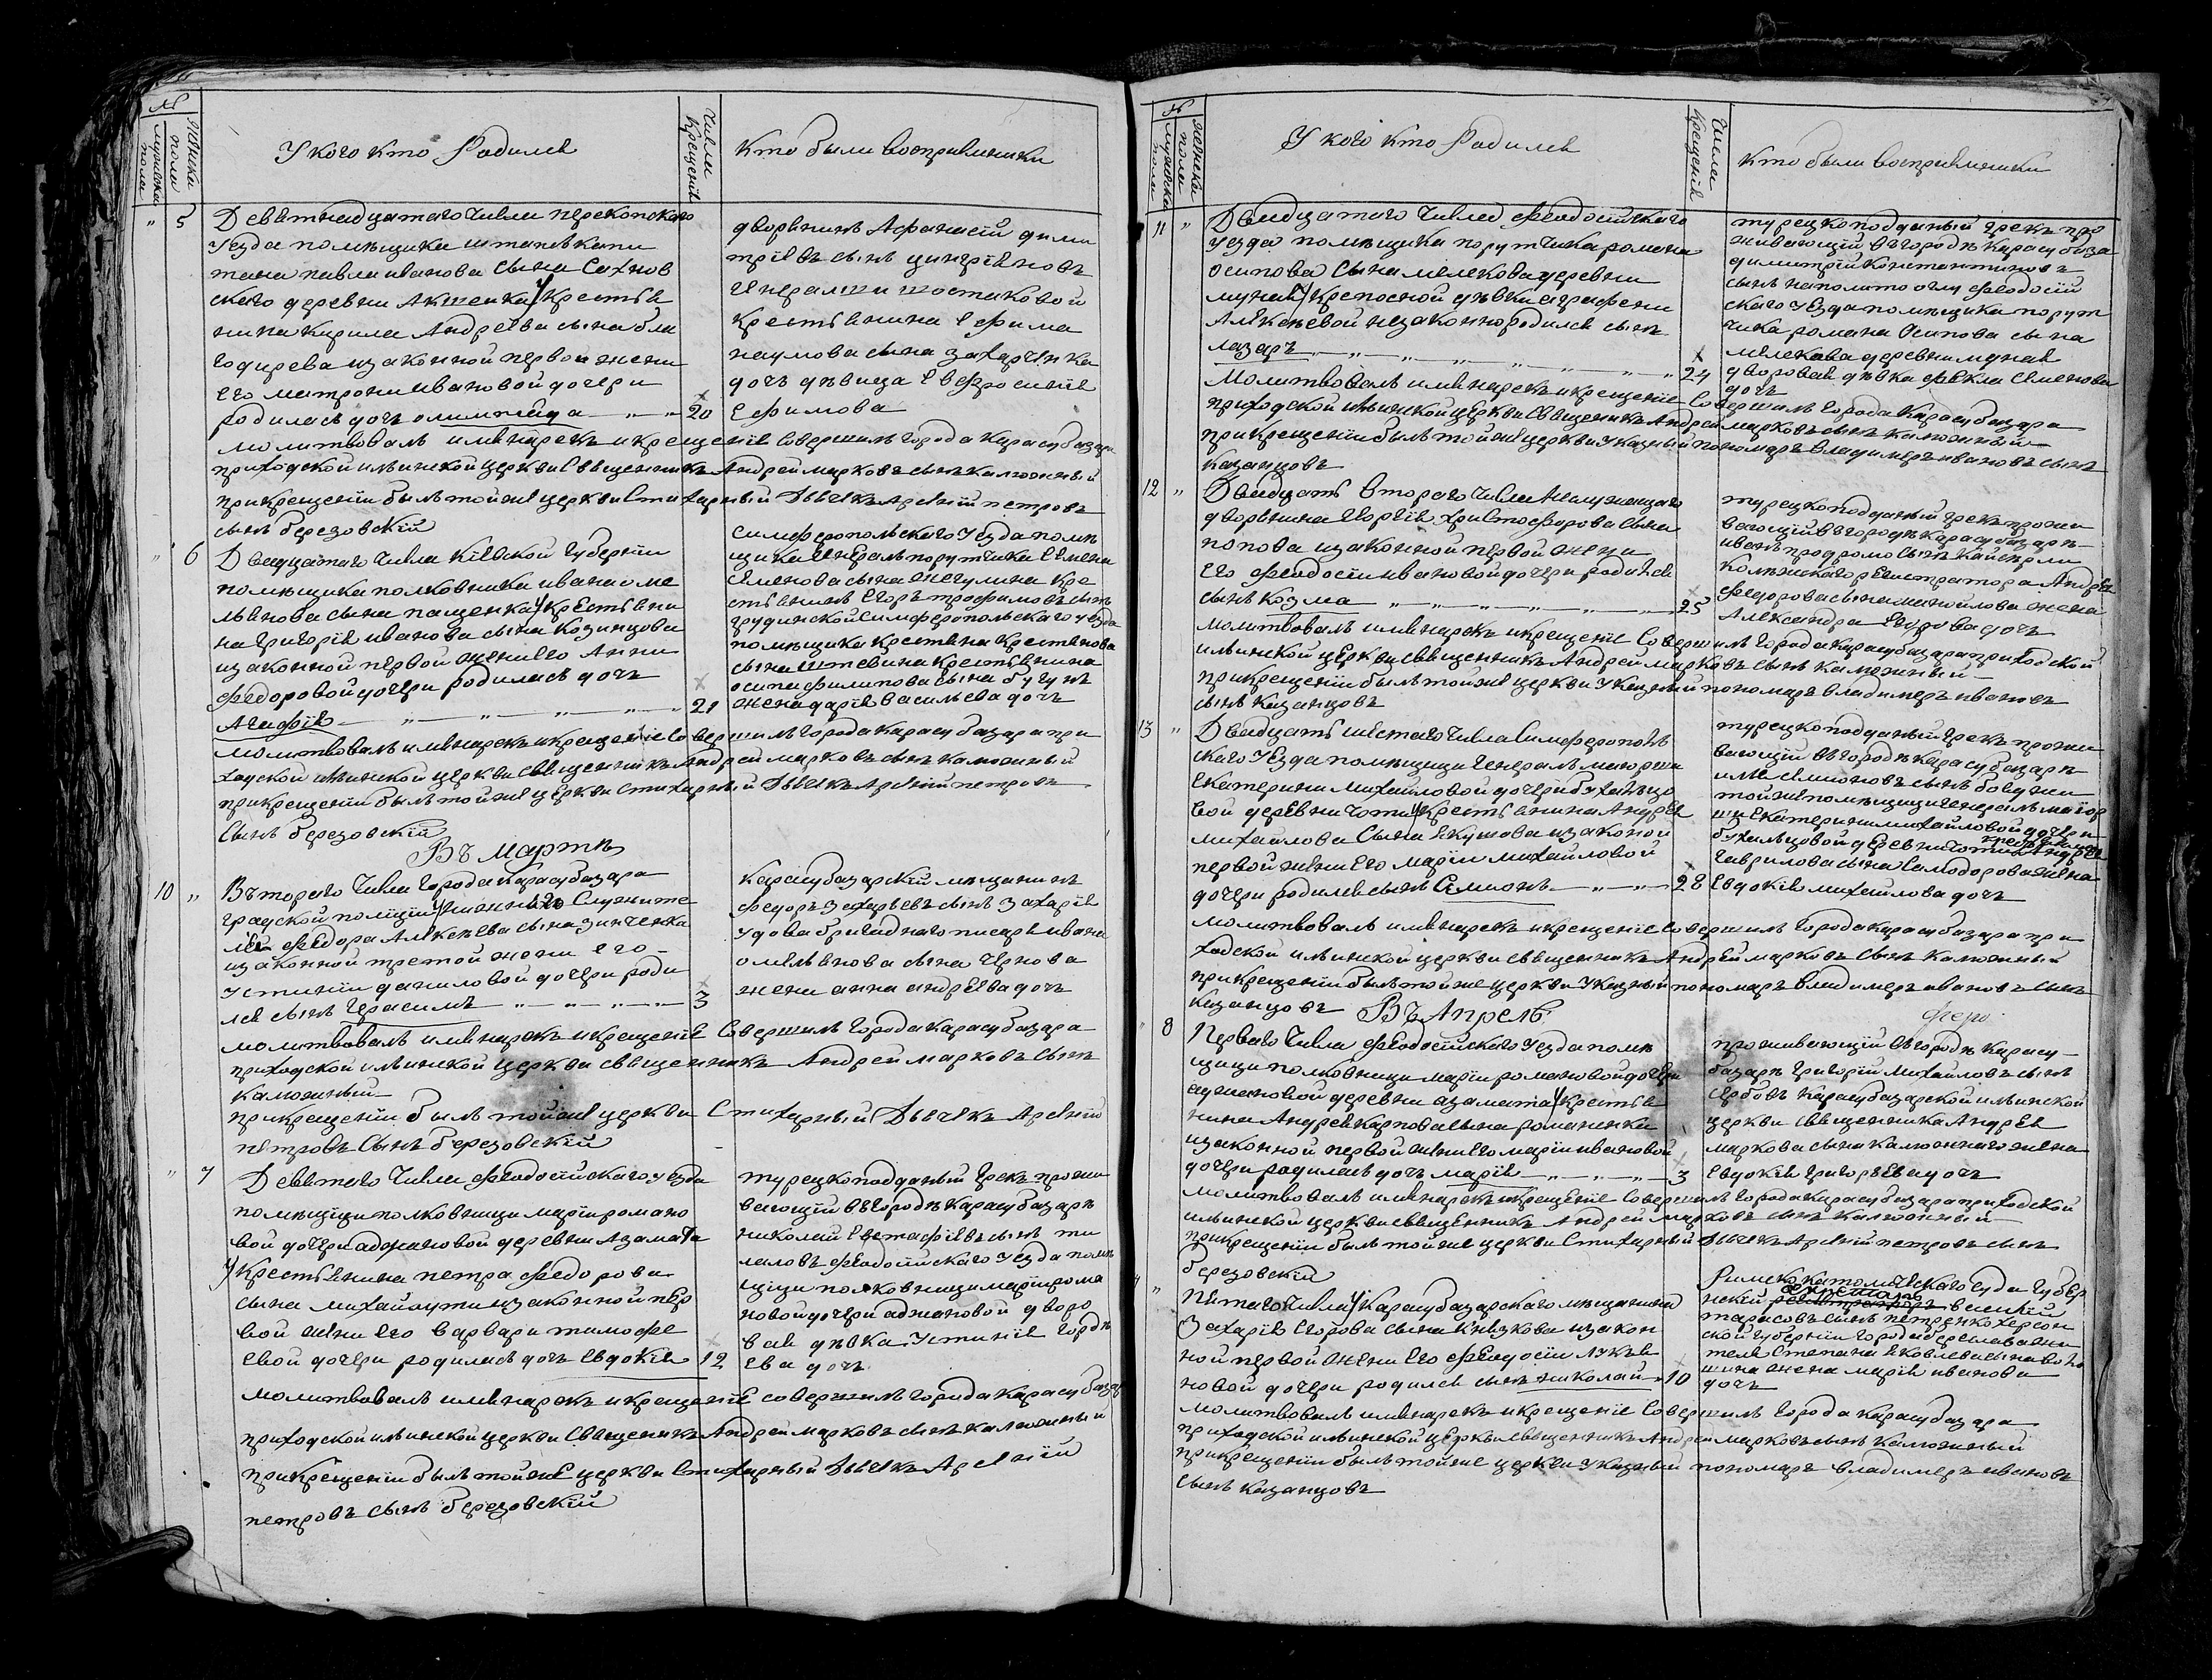 №
мужеска пола
женска пола
У кого кто Родился
Числа Крещенія
Кто были восприемники
" 5
Девятнадцатаго Числа перекопскаго
Уезда помѣщика штапсъ капи
тана павла иванова сына Сахнов
скаго деревни Акшеика у Крестья
нина кирила Андреева сына бла
годирева изаконной первой жены
Его матроны ивановой дочери
родилась дочь олимпиада " " 20
дворянинъ Афанасій дими
тріевъ сынъ цингріяновъ
Генералши шостаковой
крестьянина Ефима
наумова сына захарченка
дочь дѣвица Евфросинія
Ефимова
молитвовалъ имянарекъ икрещеніе Совершилъ города Карасубазара
приходской ильинской Церкви Священникъ Андрей марковъ сынъ калюжный
прикрещеніи былъ тойже церкви Стихарный Дьячекъ Арсеній петровъ
сынъ березовскій
" 6
Двадцатаго Числа Кіевской Губерніи
помѣщика полковника ивана оме
льянова сына пащенка у Крестьяни
на Григорія иванова сына Козинцова
изаконной первой жены Его Анны
федоровой дочери родилась дочь
Агафія " " " " 21
симферопольскаго Уезда помѣ
щика Генералъ порутчика Семена
Семенова сына жегулина кре
стьянинъ Егоръ трофимовъ сынъ
грудинской Симферопольскаго уезда
помѣщика крестьяна крестьянова
сына штевина крестьянина
осипа филипова сына бугунъ
жена дарія васильева дочь
молитвовалъ имянарекъ икрещеніе Совершилъ Города карасубазара при
ходской ильинской церкви священникъ Андрей марковъ сынъ калюжный
прикрещеніи былъ тойже Церкви Стихарный Дьячекъ Арсеній петровъ
Сынъ березовскій
Въ мартѣ
10 "
Втораго Числа Города Карасубазара
градской полиціи у женнаго Служите
ля федора Алексѣева сына Зинченка
изаконной третой жены его
Устиніи даниловой дочери роди
лся сынъ Герасимъ " " " " 3
Карасубазарскій мѣщанинъ
федоръ Захарьевъ сынъ Захарія
удова бригаднаго писаря ивана
омельянова сына Чернова
жена анна андреева дочь
молитвовалъ имянарекъ икрещеніе Совершилъ Города карасубазара
приходской ильинской церкви священникъ Андрей марковъ сынъ
калюжный
прикрещеніи былъ тойже церкви Стихарный Дьячекъ Арсеній
петровъ сынъ березовскій
" 7
Девятаго Числа феодосійскаго уезда
помѣщицы полковницы маріи романо
вой дочери аджановой деревни Азамата
у Крестьянина петра федорова
сына михайлути изаконной пер
вой жены его варвары тимофе
евой дочери родилась дочь Евдокія 12
турецкоподданый грекъ прожи
вающій въгородѣ карасубазарѣ
николай Евстафіевъ сынъ ти
маловъ феодосійскаго Уезда помѣ
щицы полковницы маріи рома
новой дочери аджановой дворо
вая дѣвка Устинія Гордѣ
ева дочь
молитвовалъ имянарекъ икрещеніе совершилъ города карасубазара
приходской ильинской церкви Священикъ Андрей марковъ сынъ калюжный
прикрещеніи былъ тойже церкви Стихарный Дьячекъ Арсеній
петровъ сынъ березовскій
№
мужеска пола
женска пола
У кого кто Родился
Числа Крещенія
Кто были восприемники
11 "
Двадцатаго Числа феодосійскаго
уезда помѣщика порутчика романа
осипова сына мелекова деревни
муная у Крепосной дѣвки аграфены
Алексѣевой незаконнородился сынъ
лазаръ " " " " " " 24
турецкоподданый Грекъ про
живающій въгородѣ карасубаза
димитрій константиновъ
сынъ наполито оглу феодосій
скаго уезда помѣщика порут
чика романа Осипова сына
мелекова деревни муная
дворовая дѣвка фекла Семенова
дочь
молитвовалъ имянарекъ икрещеніе Совершилъ города Карасубазара
приходской ильинской церкви Священикъ Андрей марковъ сынъ калюжный
прикрещеніи былъ тойже церкви Указный пономаръ Владимеръ ивановъ сынъ
Казанцовъ
12 "
Двадцать втораго Числа неслужащаго
дворянина Георгія христофорова сына
попова изаконной первой жены
Его феодосіи ивановой дочери родился
сынъ Козма " " " " " 25
турецкоподданый грекъ прожи
вающій въгородѣ карасубазарѣ
иванъ продромо сынъ кайсерли
колежскаго регистратора Андрея
федорова сына манойлова жена
Александра Егорова дочь
молитвовалъ имянарекъ икрещеніе Совершилъ Города карасубазара приходской
ильинской церкви священникъ Андрей марковъ сынъ калюжный
прикрещеніи былъ тойже церкви Указный пономаръ владимеръ ивановъ
сынъ Казанцовъ
13 "
Двадцать шестаго Числа Симферополь
скаго Уезда помѣщицы Генералъ маіорши
Екатерины михайловой дочери бухальцо
вой деревни Чоты у крестьянина Андрея
михайлова сына Якушова изаконой
первой жены Его маріи михайловой
дочери родился сынъ Симионъ " " 28
турецкоподданый Грекъ прожи
вающій въгородѣ карасубазарѣ
илья симионовъ сынъ
тойже помѣщицы Генералъ маіор
ши Екатерины михайловой дочери
бухальцовой деревни Чоты Андрея
Гаврилова сына Самодорова жена
Евдокія михайлова дочь
молитвовалъ имянарекъ икрещеніе Совершилъ Города карасубазара при
ходской ильинской церкви священникъ Андрей марковъ сынъ калюжный
прикрещеніи былъ тойже церкви Указный пономаръ владимеръ ивановъ сынъ
Казанцовъ
Въ Апрелѣ
" 8
Перваго Числа феодосійскаго уезда помѣ
щицы полковницы маріи романовой дочери
аджановой деревни азамата у крестья
нина Андрея карпова сына романенка
изаконной первой жены Его маріи ивановой
дочери родилась дочь марія " " 3
проживающій въгородѣ карасу
базарѣ Григорій михайловъ сынъ
Сербовъ карасубазарской ильинской
церкви священника Андрея
маркова сына калюжнаго жена
Евдокія Григорьева дочь
молитвовалъ имянарекъ икрещеніе Совершилъ города карасубазара приходской
ильинской церкви священникъ Андрей марковъ сынъ калюжный
прикрещеніи былъ тойже церкви Стихарный Дьячекъ Арсеній петровъ сынъ
березовскій
"
Пятаго Числа у Карасубазарскаго мѣщанина
Захарія Егорова сына Князкова изакон
ной первой жены Его феодосіи лукья
новой дочери родился сынъ николай 10
Римскокатолическаго суда губер
нскій василій
тарасовъ сынъ петренко херсон
ской губерніи города береславажи
теля Степана Яковлева сына
жена марія иванова
дочь
молитвовалъ имянарекъ икрещеніе Совершилъ Города карасубазара
приходской ильинской церкви священникъ Андрей марковъ сынъ калюжный
прикрещеніи былъ тойже церкви Указный пономаръ владимеръ ивановъ
сынъ казанцовъ